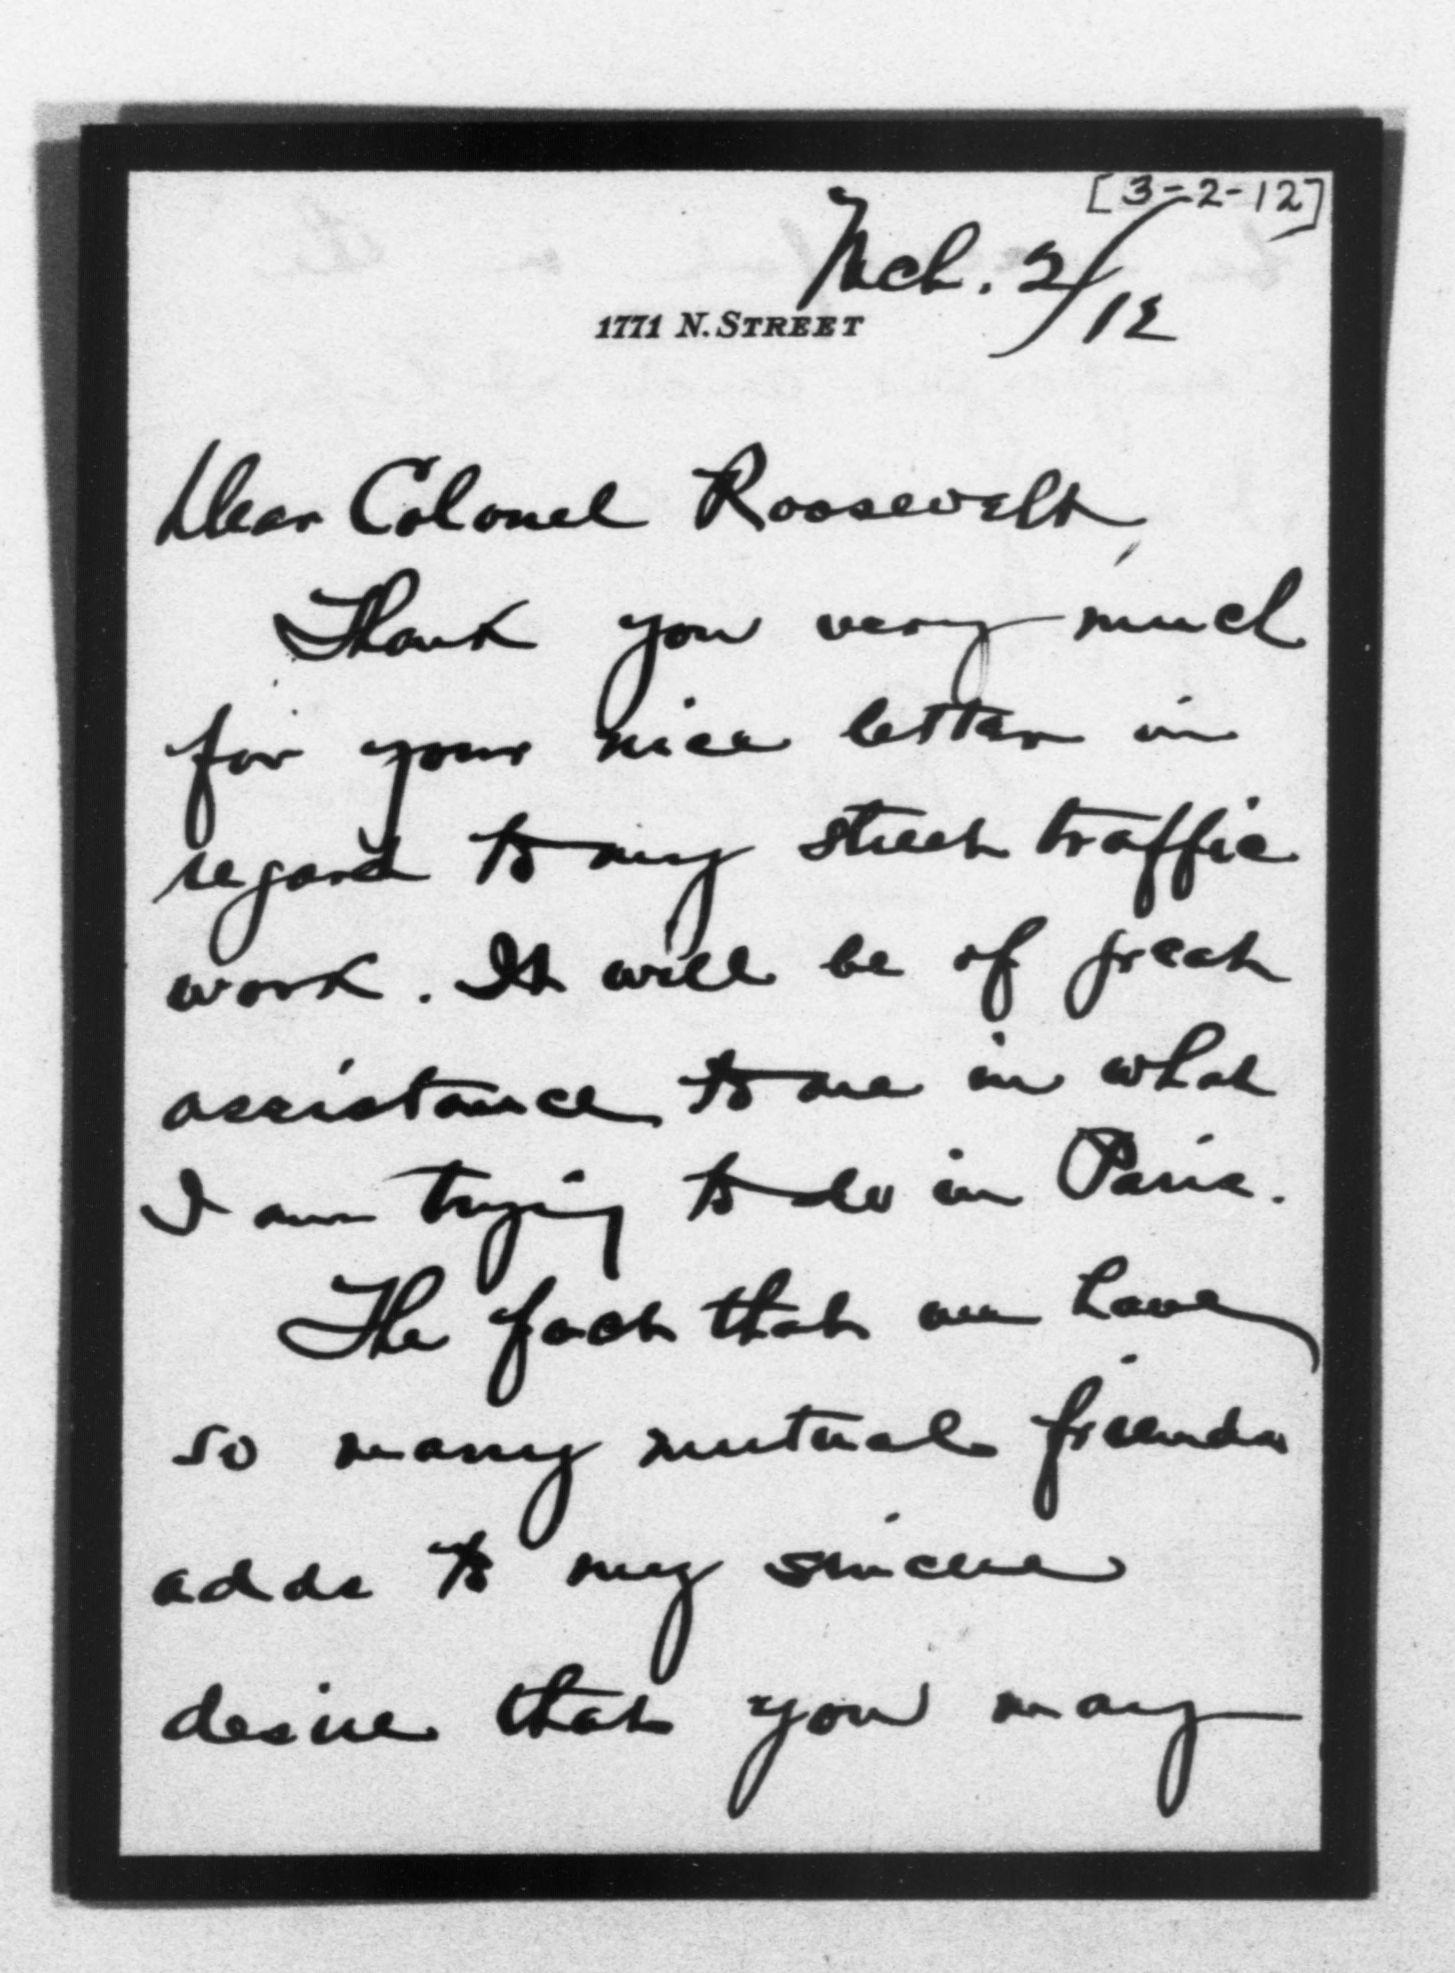 [3-2-12]
Mch. 2/12
1771 N. STREET
Dear Colonel Roosevelt,
Thank you very much
for your nice letter in
regard to my street traffic
work. It will be of great
assistance to me in what
I am trying to do in Paris.
The fact that we have
so many mutual friends
adds to my sincere
desire that you may